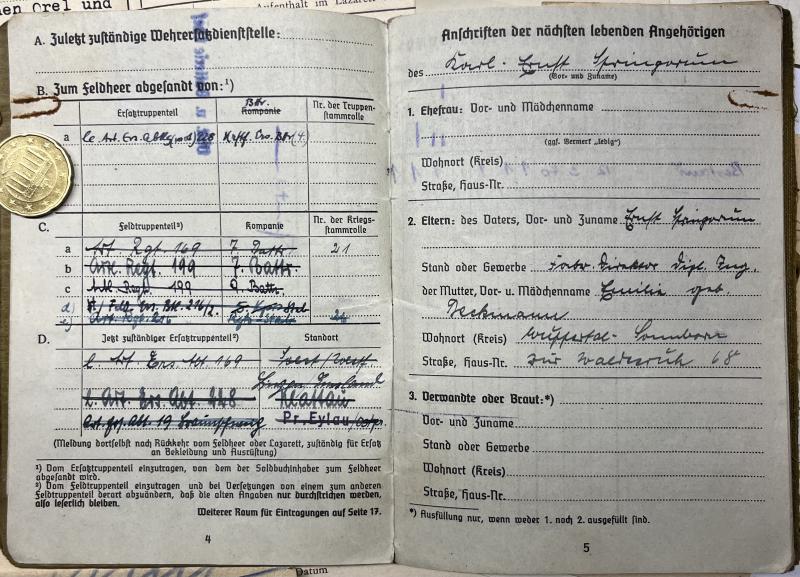 en Orel und
Aufenthalt im Lazarett
A. Zuletzt zuständige Wehrersatzdienststelle:
B. Zum Feldheer abgesandt von:¹)
Ersatztruppenteil
Battr.
Kompanie
Nr. der Truppen-
stammrolle
a
C.
Feldtruppenteil²)
Kompanie
Nr. der Kriegs-
stammrolle
a Art. Rgt. 169 7. Battr. 21
b Art. Regt. 199 7. Battr.
c Artl. Regt. 199 9. Battr.
d)
D.
Jetzt zuständiger Ersatztruppenteil²)
Standort
l. Art. Ers. Abt. 169 Soest/Westf
l. Art. Ers. Abt. 228 Klattau
19 Braunschweig Pr. Eylau/Ostpr.
(Meldung dortselbst nach Rückkehr vom Feldheer oder Lazarett, zuständig für Ersatz
an Bekleidung und Ausrüstung)
¹) Vom Ersatztruppenteil einzutragen, von dem der Soldbuchinhaber zum Feldheer
abgesandt wird.
²) Vom Feldtruppenteil einzutragen und bei Versetzungen von einem zum anderen
Feldtruppenteil derart abzuändern, daß die alten Angaben nur durchstrichen werden,
also leserlich bleiben.
Weiterer Raum für Eintragungen auf Seite 17.
4
Anschriften der nächsten lebenden Angehörigen
des Karl-Ernst Springorum
(Vor- und Zuname)
1. Ehefrau: Vor- und Mädchenname
(ggf. Vermerk „ledig")
Wohnort (Kreis)
Straße, Haus-Nr.
2. Eltern: des Vaters, Vor- und Zuname Ernst Springorum
Stand oder Gewerbe Direktor Dipl. Ing.
der Mutter, Vor- u. Mädchenname Emilie geb
Deckmann
Wohnort (Kreis) Wuppertal-Sonnborn
Straße, Haus-Nr. Zur Waldesruh 68
3. Verwandte oder Braut:*)
Vor- und Zuname
Stand oder Gewerbe
Wohnort (Kreis)
Straße, Haus-Nr.
*) Ausfüllung nur, wenn weder 1. noch 2. ausgefüllt sind.
5
Datum